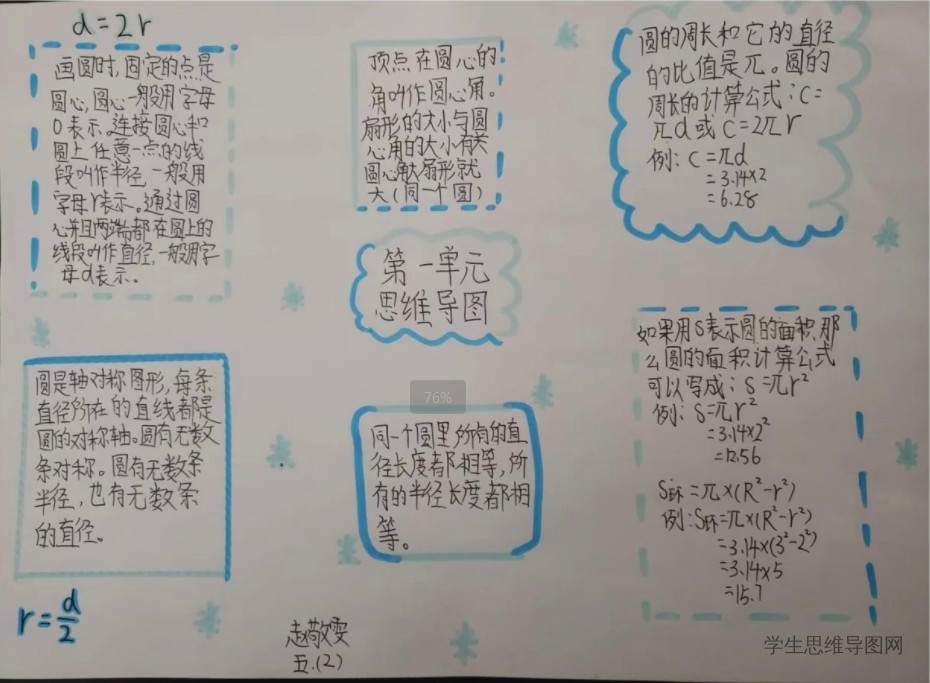 d=2r
画圆时,固定的点是
圆心,圆心一般用字母
O表示。连接圆心和
圆上任意一点的线
段叫作半径,一般用
字母r表示。通过圆
心并且两端都在圆上的
线段叫作直径,一般用字
母d表示。
顶点在圆心的
角叫作圆心角。
扇形的大小与圆
心角的大小有关
圆心角大扇形就
大(同一个圆)
圆的周长和它的直径
的比值是π。圆的
周长的计算公式:C=
πd或C=2πr
例:C=πd
=3.14×2
=6.28
第一单元
思维导图
圆是轴对称图形,每条
直径所在的直线都是
圆的对称轴。圆有无数
条对称。圆有无数条
半径,也有无数条
的直径。
r=d/2
76%
同一个圆里所有的直
径长度都相等,所
有的半径长度都相
等。
如果用S表示圆的面积,那
么圆的面积计算公式
可以写成:S=πr²
例:S=πr²
=3.14×2²
=12.56
S环=π×(R²-r²)
例:S环=π×(R²-r²)
=3.14×(3²-2²)
=3.14×5
=15.7
赵敬雯
五.(2)
学生思维导图网